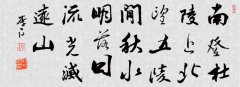 南登杜
陵上北
望五陵
間秋水
明落日
流光滅
遠山